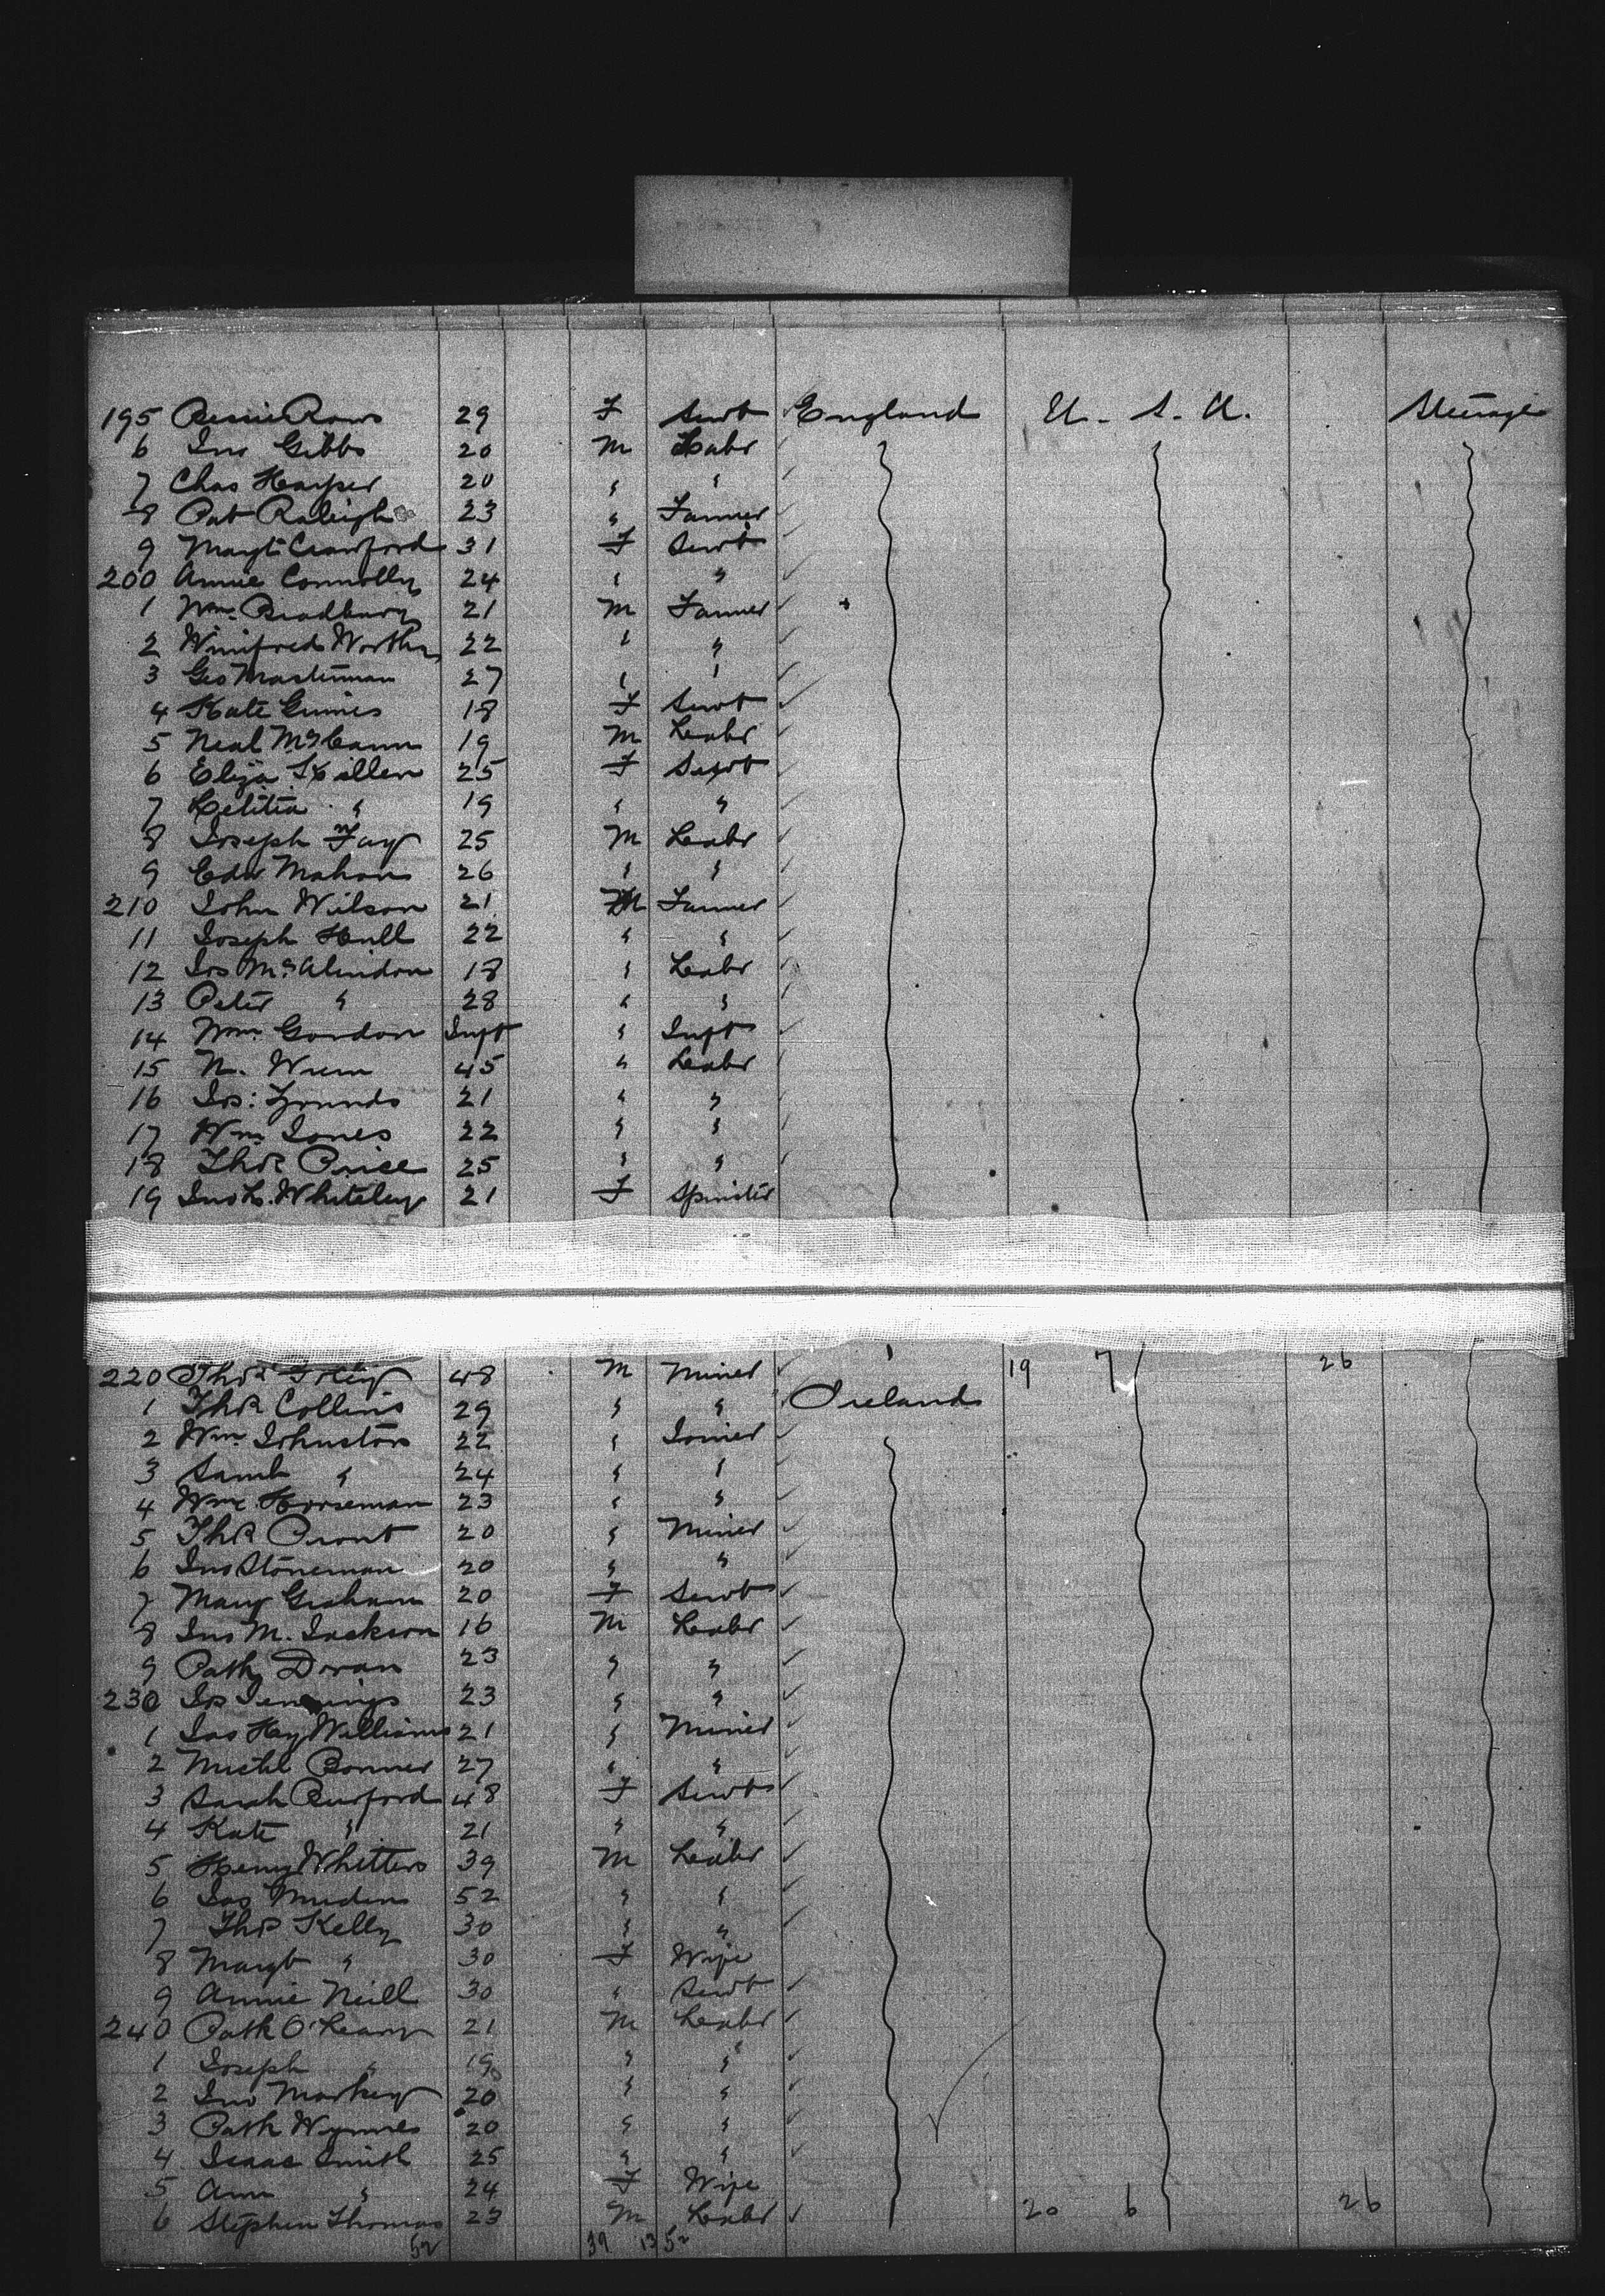 195 Bessie Rows 29 F Servt England U. S. A. Steerage
6 Jno Gibbs 20 M Labr
7 Chas Harper 20 " "
8 Pat Raleigh 23 " Farmer
9 Margt Crawford 31 F Servt
200 Annie Connolly 24 " "
1 Wm. Bradbury 21 M Farmer
2 Winifred Worthy 22 " "
3 Geo Masterman 27 " "
4 Kate Grimes 18 F Servt
5 Neal McCann 19 M Labr
6 Eliza Killen 25 F Servt
7 Letitia " 19 " "
8 Joseph Fay 25 M Labr
9 Edw Mahon 26 " "
210 John Wilson 21 M Farmer
11 Joseph Hull 22 " "
12 Jos McAlindon 18 " Labr
13 Peter " 28 " "
14 Wm. Gordon Inft " Inft
15 N. Wrem 45 " Labr
16 Jos: 21 " "
17 Wm Jones 22 " "
18 Thos Price 25 " "
19 Jno L. Whiteley 21 F Spinster
220 Thos Foley 48 M Miner 19 7 26
1 Thos Collins 29 " " Ireland
2 Wm. Johnston 22 " Joiner
3 Saml " 24 " "
4 Wm. Horseman 23 " "
5 Thos Pront 20 " Miner
6 Jno Stoneman 20 " "
7 Mary Graham 20 F Servt
8 Jno M. Jackson 16 M Labr
9 Patk Doran 23 " "
230 Jos Jennings 23 " "
1 Jas Hy Williams 21 " Miner
2 Michl Bonner 27 " "
3 Sarah Burford 48 F Servt
4 Kate " 21 " "
5 Henry Whitters 39 M Labr
6 Jas 52 " "
7 Thos Kelly 30 " "
8 Margt " 30 F Wife
9 Annie Neill 30 " Servt
240 Patk O'Leary 21 M Labr
1 Joseph " 19 " "
2 Jno Markey 20 " "
3 Patk Wynnes 20 " "
4 Isaac Smith 25 " "
5 Ann " 24 F Wife
6 Stephen Thomas 23 M Labr 20 6 26
52 39 13 52